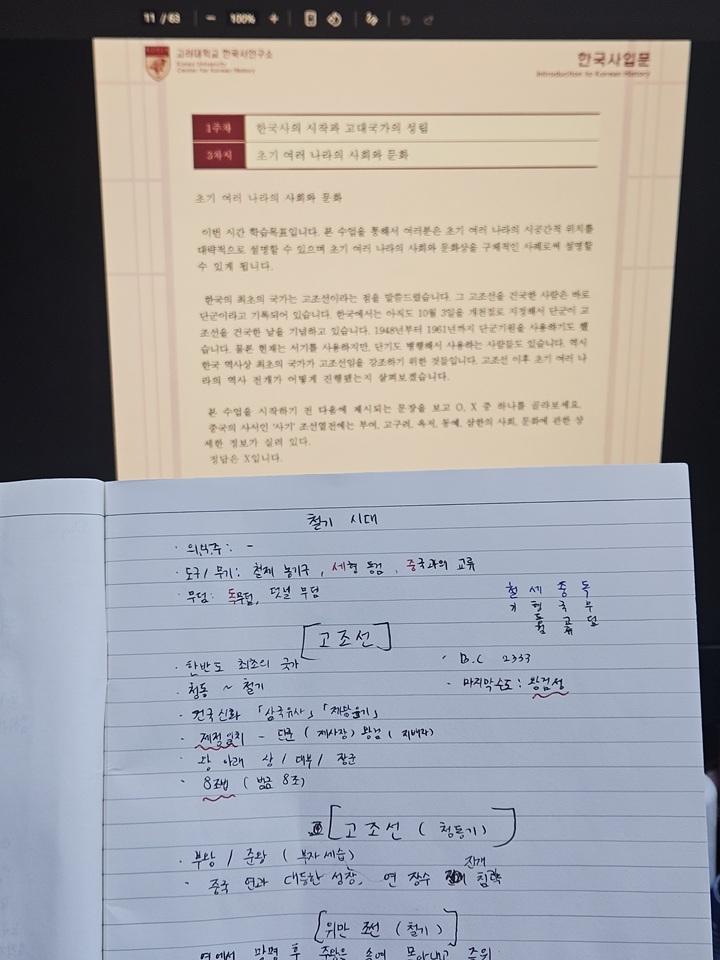 11 / 63 − 100% +
고려대학교 한국사연구소
Korea University
Center for Korean History
한국사입문
Introduction to Korean History
1주차 한국사의 시작과 고대국가의 성립
3차시 초기 여러 나라의 사회와 문화
초기 여러 나라의 사회와 문화
이번 시간 학습목표입니다. 본 수업을 통해서 여러분은 초기 여러 나라의 시공간적 위치를
대략적으로 설명할 수 있으며 초기 여러 나라의 사회와 문화상을 구체적인 사례로써 설명할
수 있게 됩니다.
한국의 최초의 국가는 고조선이라는 점을 말씀드렸습니다. 그 고조선을 건국한 사람은 바로
단군이라고 기록되어 있습니다. 한국에서는 아직도 10월 3일을 개천절로 지정해서 단군이 고
조선을 건국한 날을 기념하고 있습니다. 1948년부터 1961년까지 단군기원을 사용하기도 했
습니다. 물론 현재는 서기를 사용하지만, 단기도 병행해서 사용하는 사람들도 있습니다. 역시
한국 역사상 최초의 국가가 고조선임을 강조하기 위한 것들입니다. 고조선 이후 초기 여러 나
라의 역사 전개가 어떻게 진행됐는지 살펴보겠습니다.
본 수업을 시작하기 전 다음에 제시되는 문장을 보고 O, X 중 하나를 골라보세요.
중국의 사서인 '사기' 조선열전에는 부여, 고구려, 옥저, 동예, 삼한의 사회, 문화에 관한 상
세한 정보가 실려 있다.
정답은 X입니다.
철기 시대
· 의식주 : -
· 도구/무기 : 철제 농기구, 세형 동검, 중국과의 교류
· 무덤 : 독무덤, 널 무덤
철 세 중 독
기 형 국 무
동 교 덤
검 류
[고조선]
· 한반도 최초의 국가
· B.C 2333
· 청동 ~ 철기
· 마지막수도 : 왕검성
· 건국신화 「삼국유사」 「제왕운기」
· 제정일치 - 단군 (제사장) 왕검 (지배자)
· 왕 아래 상 / 대부 / 장군
· 8조법 (범금 8조)
[고조선 (청동기)]
· 부왕 / 준왕 (부자세습)
· 중국 연과 대등한 성장, 연 장수 진개 침략
[위만 조선 (철기)]
연에서 망명 후 준왕을